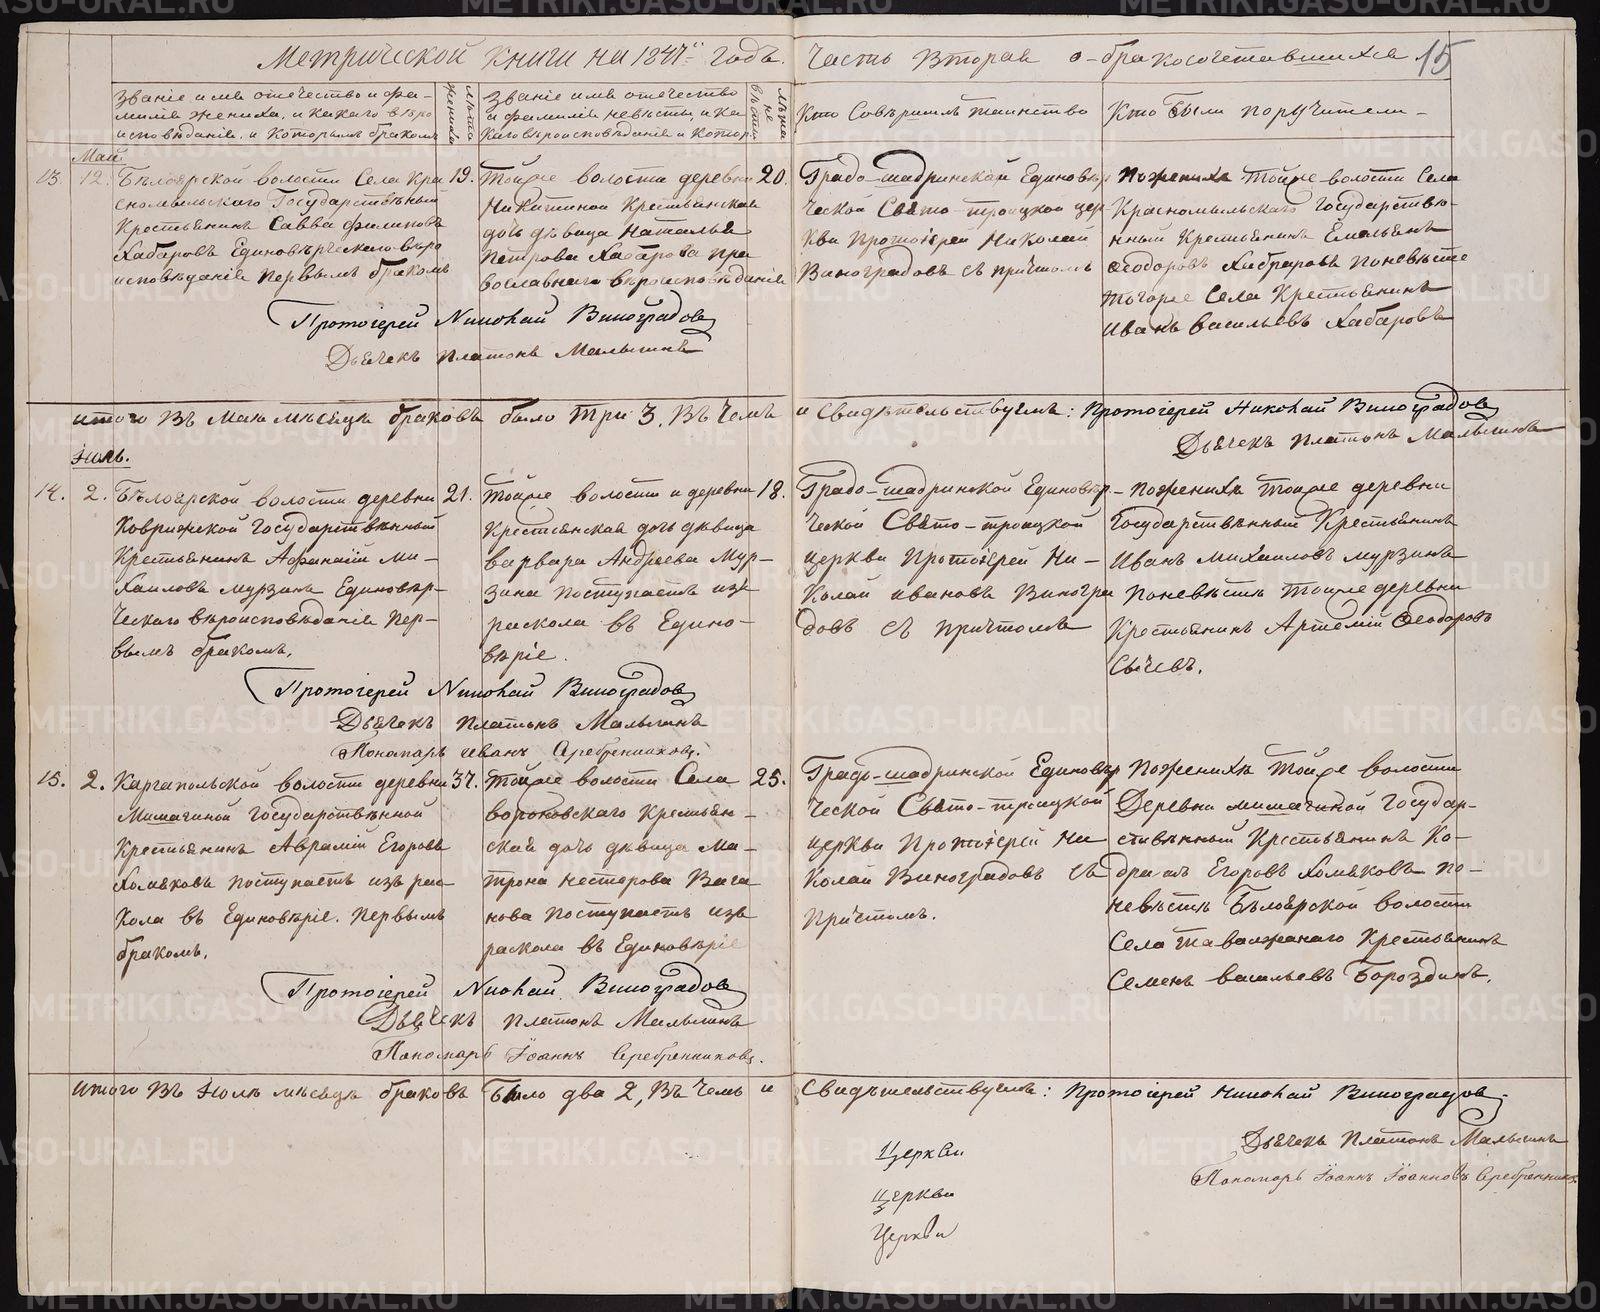 Метрической книги на 1847й годъ. Часть вторая о бракосочетавшихся 15
Званіе имя отечество и фа-
миліе жениха, и какаго вѣро
исповѣданіе, и которымъ бракомъ
лѣта жениха
Званіе имя отечество
и фамиліе невѣсты, и ка
каго вѣроисповѣданіе и котор
лѣта невѣсты
Кто Совѣршилъ таинство
Кто были поручители
Май
13. 12.
Бѣлоярской волости Села Кра
сномыльскаго Государствѣный
Крестьянинъ Савва Филиповъ
Хабаровъ Единовѣрческаго вѣро
исповѣданіе первымъ бракомъ
19.
Тойже волости деревни
Никитиной Крестьянская
дочь дѣвица Наталья
Петрова Хабарова пра
вославнаго вѣроисповѣданіе
20.
Градо-шадринской Единовѣр
ческой Свято-троицкой цер
кви Протоіерей Николай
Виноградовъ съ причтомъ
Пожениха тойже волости Села
Красномыльскаго Государствѣ-
нный Крестьянинъ Емельянъ
Феодоровъ Хабраровъ поневѣсте
тогоже Села Крестьянинъ
Иванъ Васильевъ Хабаровъ
Протоіерей Николай Виноградовъ
Дьячекъ Платонъ Малыгинъ
итого въ Маѣ мѣсяцѣ браковъ было три 3. въ чемъ и Свидѣтельствуемъ: Протоіерей Николай Виноградовъ
Дьячекъ Платонъ Малыгинъ
Июль.
14. 2.
Бѣлоярской волости деревни
Коврижской Государствѣнный
Крестьянинъ Афанасій Ми-
хаиловъ Мурзинъ Единовѣр-
ческаго вѣроисповѣданіе пер-
вымъ бракомъ.
21.
тойже волости и деревни
Крестьянская дочь дѣвица
варвара Андреева Мур-
зина поступаетъ изъ
раскола въ Едино-
вѣріе.
18.
Градо-шадринской Единовѣр-
ческой Свято-троицкой
церкви Протоіерей Ни-
колай Ивановъ Виногра
довъ съ причтомъ
Пожениха тойже деревни
Государствѣнный Крестьянинъ
Иванъ Михаиловъ Мурзинъ
Поневѣсте тойже деревни
Крестьянинъ Артемій Феодоровъ
Сычевъ.
Протоіерей Николай Виноградовъ
Дьячекъ Платонъ Малыгинъ
Пономарь Иванъ Серебренниковъ.
15. 2.
Каргапольской волости деревни
Мишагиной Государствѣнной
Крестьянинъ Аврамій Егоровъ
Хомяковъ поступаетъ изъ рас
кола въ Единовѣріе. первымъ
бракомъ.
37.
тойже волости Села
вороновскаго Крестьян-
ская дочь дѣвица Ма-
трона Нестерова Вага
нова поступаетъ изъ
раскола въ Единовѣріе
25.
Градо-шадринской Единовѣр
ческой Свято-троицкой
церкви Протоіерей Ни
колай Виноградовъ съ
Причтомъ.
Пожениха тойже волости
Деревни Мишагиной Государ-
ствѣнный Крестьянинъ Ко-
дратъ Егоровъ Хомяковъ по-
невѣсте Бѣлоярской волости
Села таволжанаго Крестьянинъ
Семенъ Васильевъ Бороздинъ.
Протоіерей Николай Виноградовъ
Дьячекъ Платонъ Малыгинъ
Пономарь Іоаннъ Серебренниковъ.
итого въ Июлѣ мѣсяцѣ браковъ было два 2, въ чемъ и Свидѣтельствуемъ: Протоіерей Николай Виноградовъ
Дьячекъ Платонъ Малыгинъ
Пономарь Іоаннъ Іоанновъ Серебренниковъ
Церкви
церкви
Церкви
METRIKI.GASO-URAL.RU